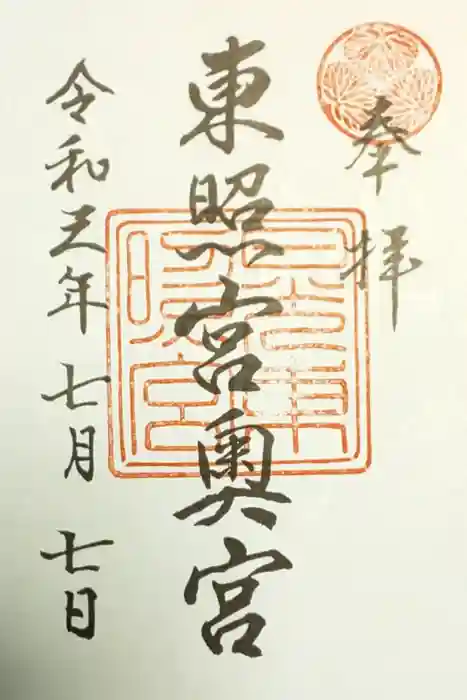 奉拝
東照宮奥宮
令和五年七月七日